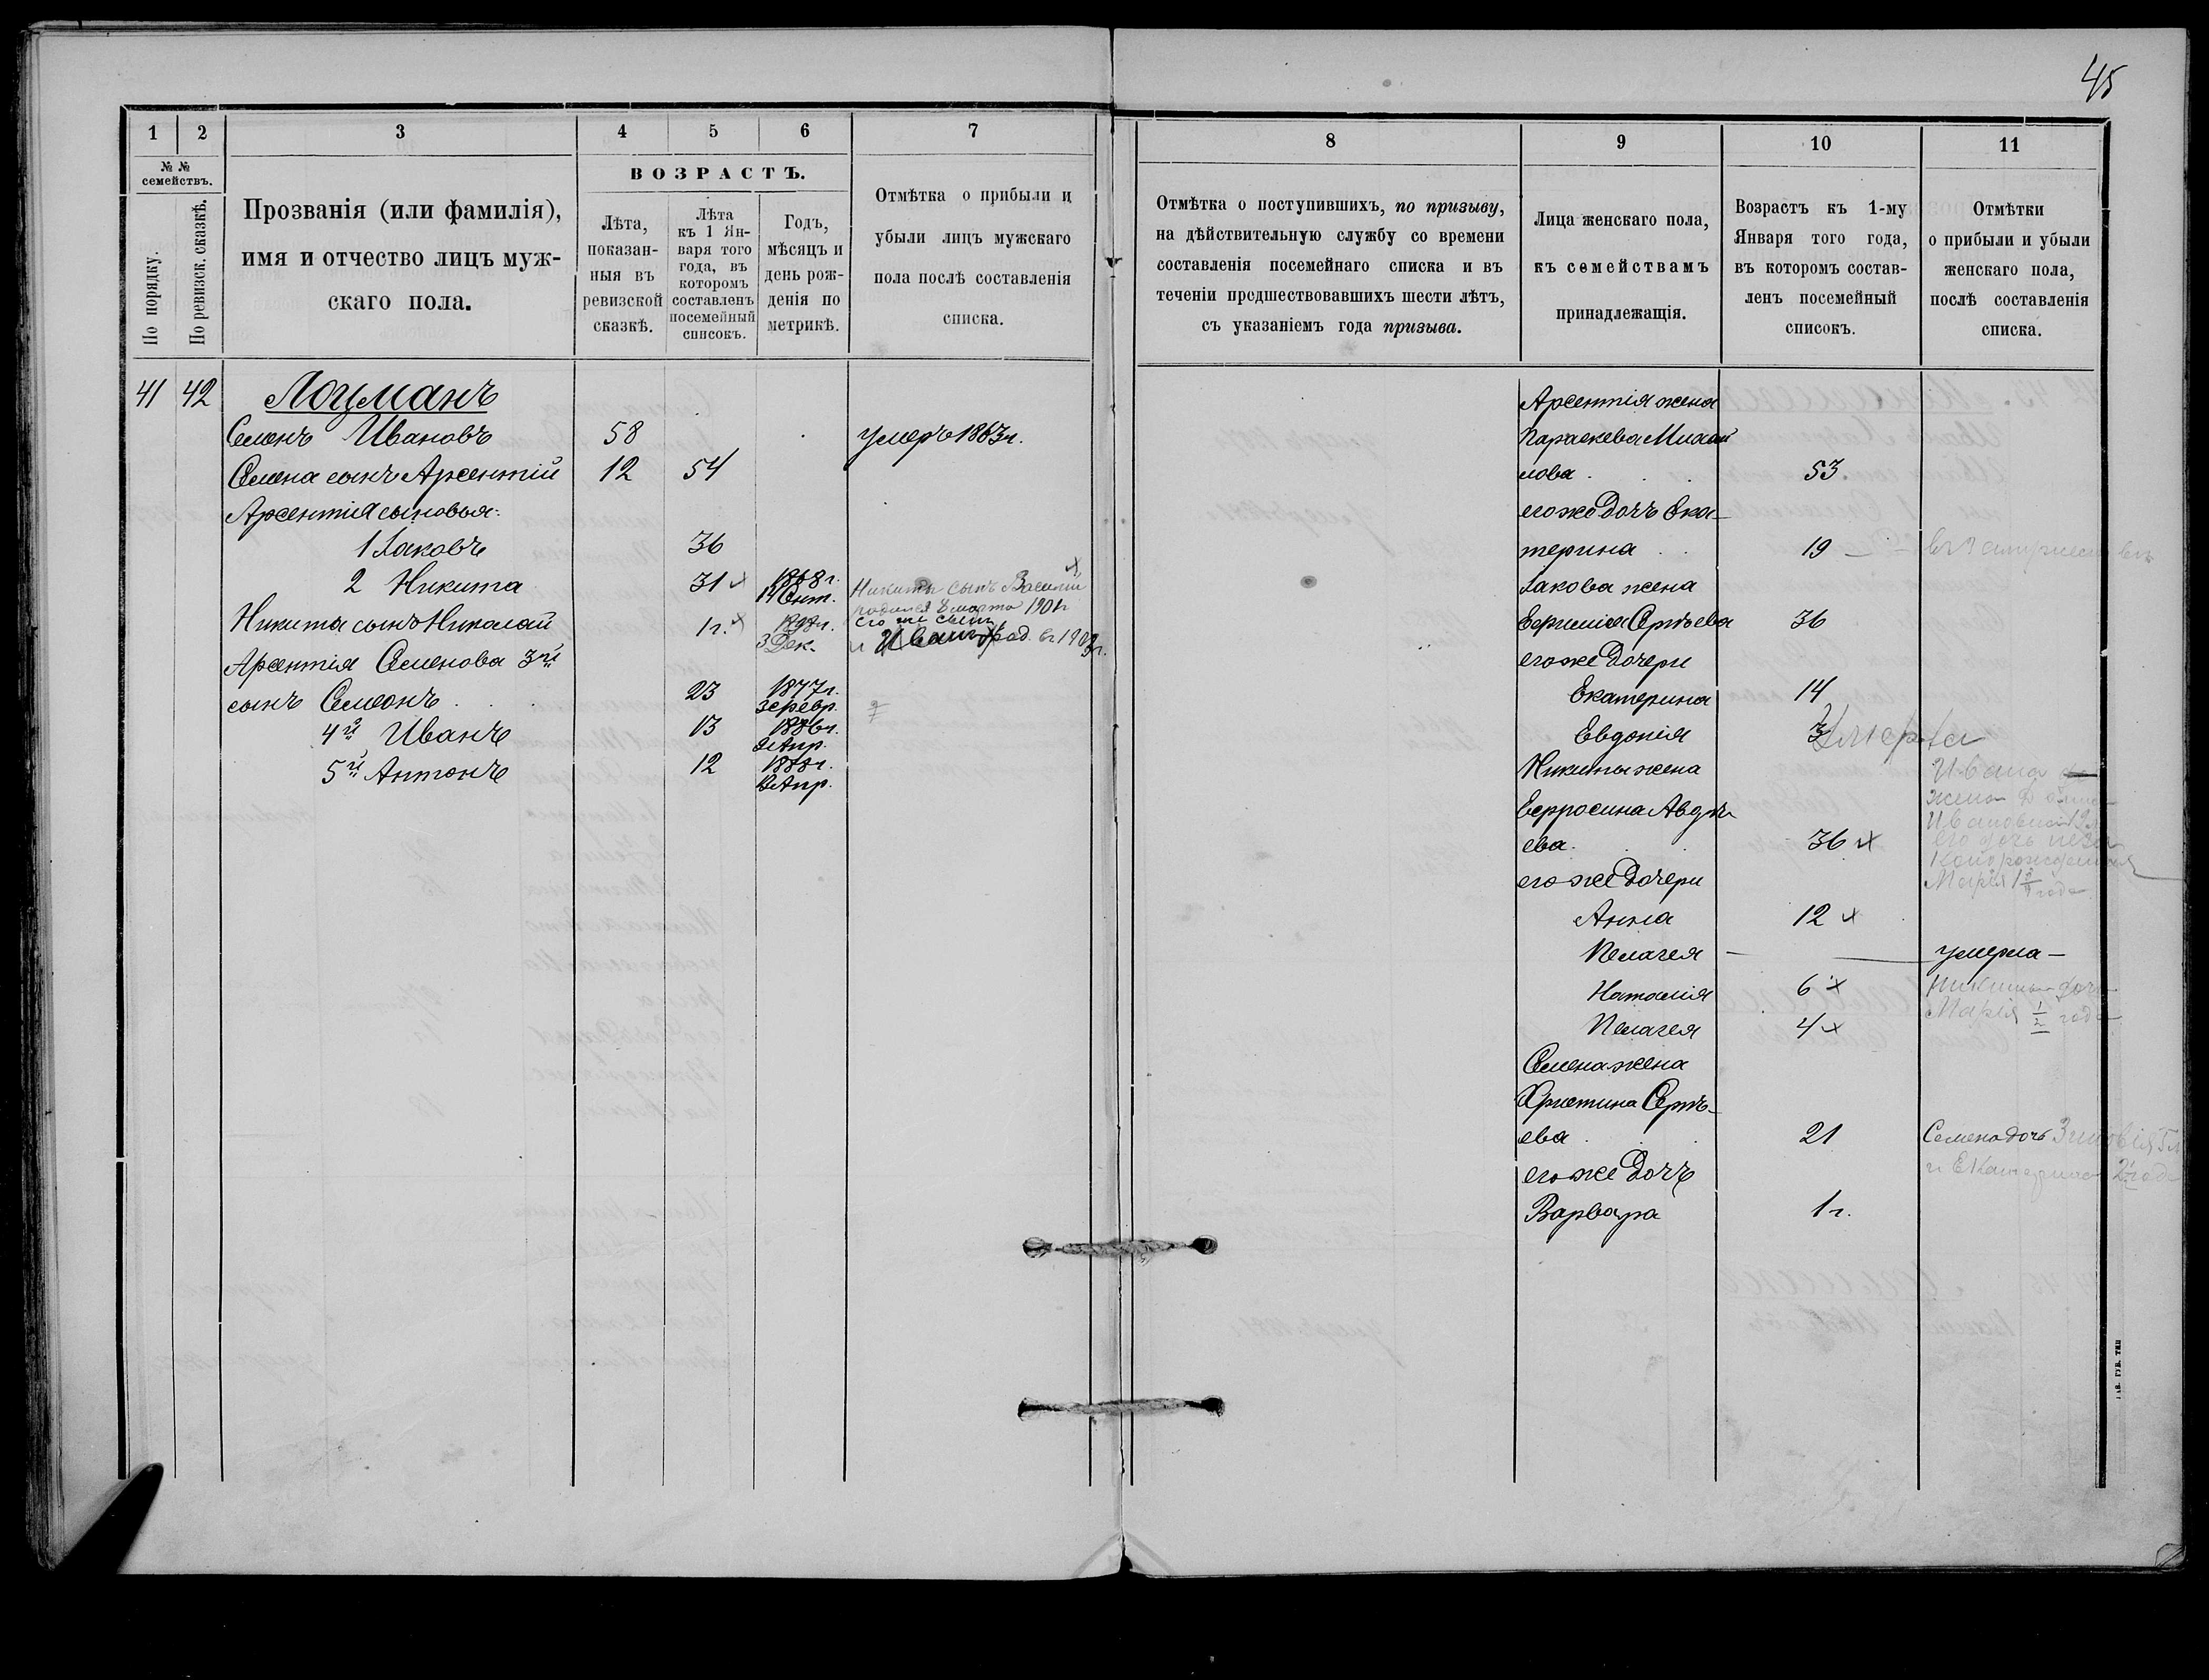 45
1 2 3 4 5 6 7
№ №
семействъ.
По порядку.
По ревизск. сказкѣ.
Прозванія (или фамилія),
имя и отчество лицъ муж-
скаго пола.
ВОЗРАСТЪ.
Лѣта,
показан-
ныя въ
ревизской
сказкѣ.
Лѣта
къ 1 Ян-
варя того
года, въ
которомъ
составленъ
посемейный
списокъ.
Годъ,
мѣсяцъ и
день рож-
денія по
метрикѣ.
Отмѣтка о прибыли и
убыли лицъ мужскаго
пола послѣ составленія
списка.
41 42 Лоцманъ
Семенъ Ивановъ 58 умеръ 1863г.
Семена сынъ Арсентій 12 54
Арсентія сыновья:
1 Іаковъ 36
2 Никита 31 х 1868г.
14 Сент.
Никиты сынъ Василій х
родился 8 марта 1901г
Никита сынъ Николай 1г. х 1898г.
3 Дек.
его же сынъ
и Иванъ род. въ 1903г.
Арсентія Семенова 3й
сынъ Семенъ 23 1877г.
3 Февр.
4й Иванъ 13 1886г.
Апр.
5й Антонъ 12 1888г.
12 Апр.
8 9 10 11
Отмѣтка о поступившихъ, по призыву,
на дѣйствительную службу со времени
составленія посемейнаго списка и въ
теченіи предшествовавшихъ шести лѣтъ,
съ указаніемъ года призыва.
Лица женскаго пола,
къ семействамъ
принадлежащія.
Возрастъ къ 1-му
Января того года,
въ которомъ состав-
ленъ посемейный
списокъ.
Отмѣтки
о прибыли и убыли
женскаго пола,
послѣ составленія
списка.
Арсентія жена
Параскева Михай
лова 53
его же дочь Ека-
терина 19 —
Іакова жена
Евфимія Сергѣева 36
его же дочери
Екатерина 14
Евдокія 3 Умерла
Никиты жена
Евфросина Авдѣ-
ева 36 х
Ивана
жена
Ивановна 19
его дочь
Марія 1
его же дочери
Анна 12 х
Пелагея — умерла —
Наталія 6 х
Пелагея 4 х
Никиты дочь
Марія 1/2 года
Семена жена
Христина Сергѣ-
ева 21 Семена дочь Зиновія 5л
и Екатерина 2 года
его же дочь
Варвара 1г.
ГУБ. ТИП